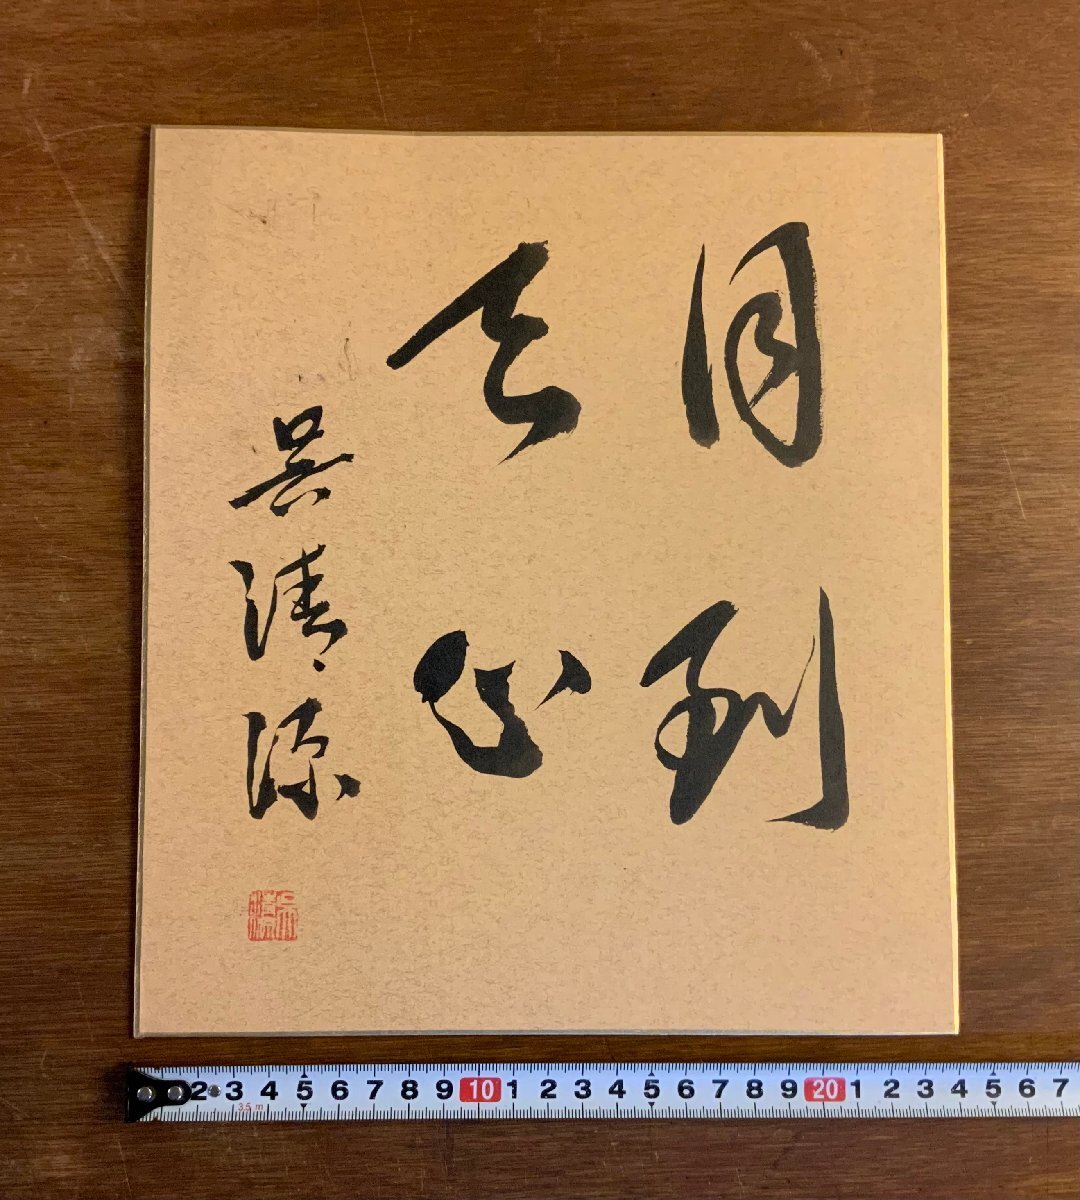 月到
天心
呉清源
2 3 4 5 6 7 8 9 10 1 2 3 4 5 6 7 8 9 20 1 2 3 4 5 6 7
3.5 m